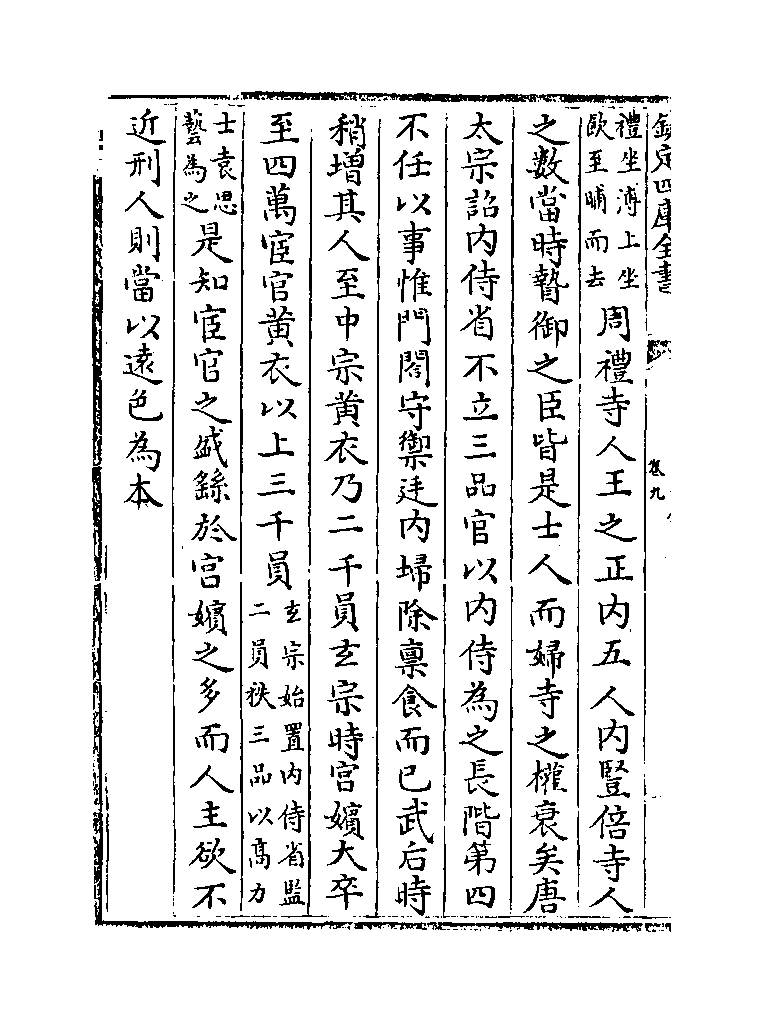 欽定四庫全書
卷九
禮坐溥上坐
歐至晡而去
周禮寺人王之正内五人内豎倍寺人
之數當時䙝御之臣皆是士人而婦寺之權衰矣唐
太宗詔内侍省不立三品官以内侍為之長階第四
不任以事惟門閤守禦廷内埽除稟食而已武后時
稍增其人至中宗黄衣乃二千員玄宗時宫嬪大卒
至四萬宦官黄衣以上三千員
玄宗始置内侍省監
二員秩三品以髙力
士袁思
藝為之
是知宦官之盛繇於宫嬪之多而人主欲不
近刑人則當以逺色為本